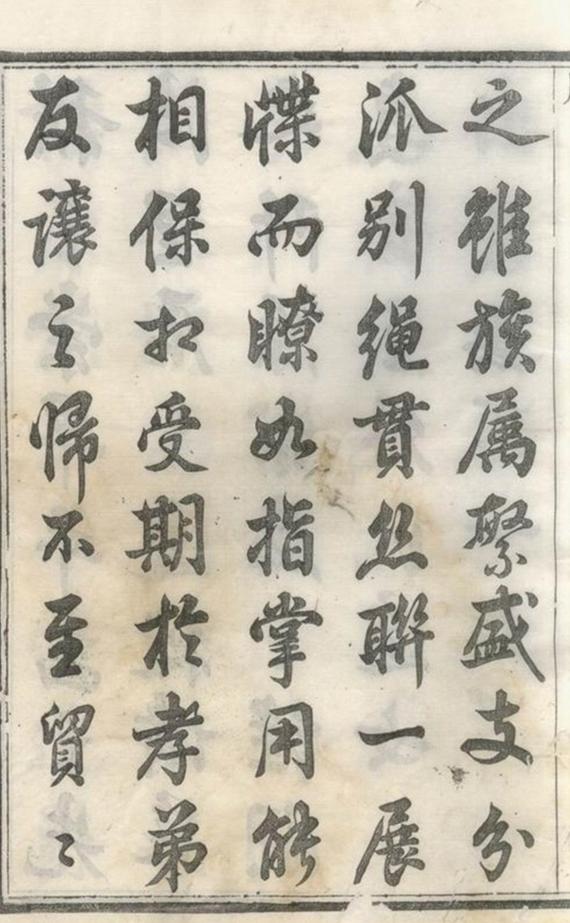 之雖族属繁盛支分
派别绳貫丝聯一展
牒而瞭如指掌用能
相保相受期於孝弟
友讓之歸不至貿〻